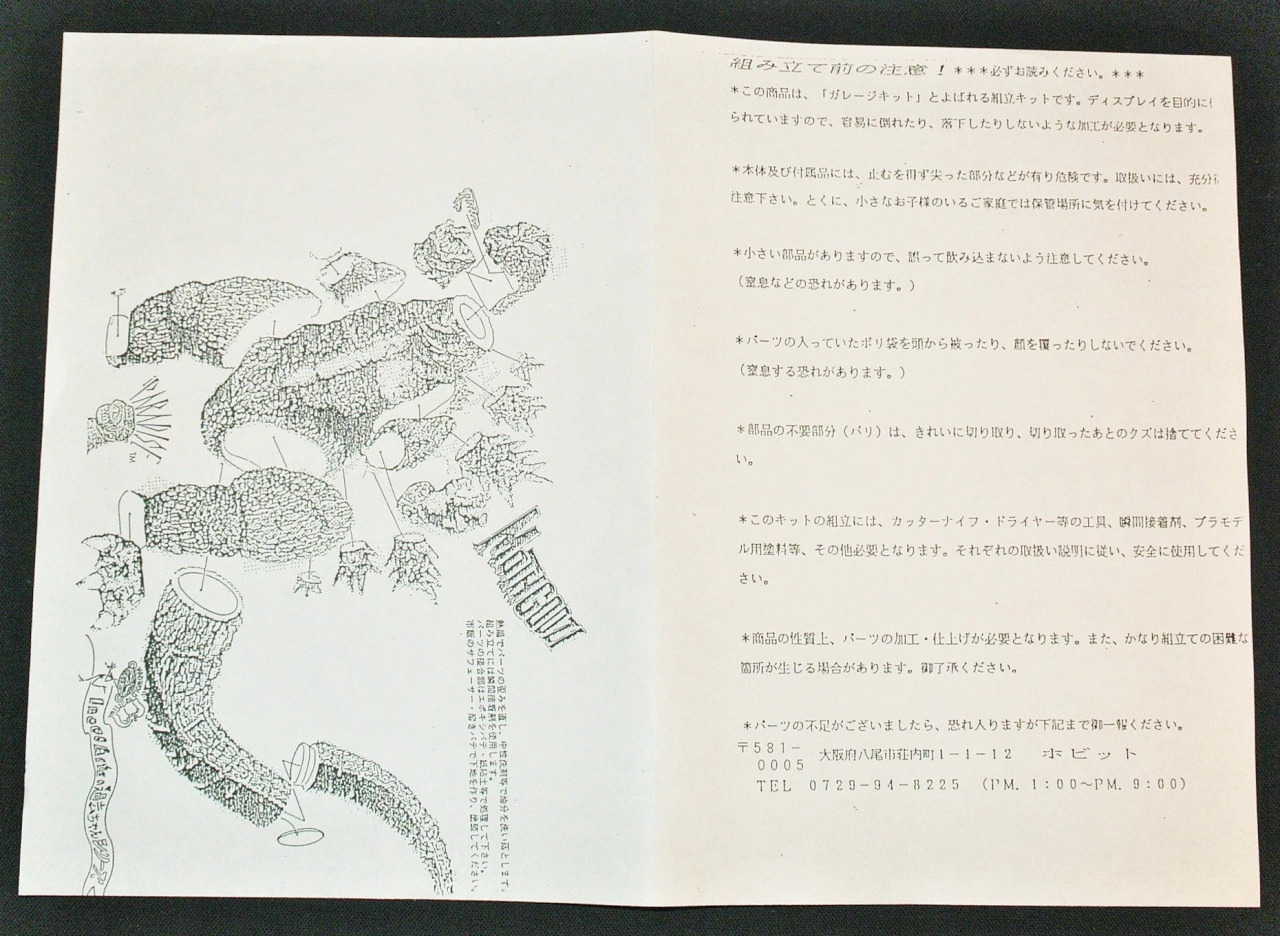 組み立て前の注意！＊＊＊必ずお読みください。＊＊＊
＊この商品は、「ガレージキット」とよばれる組立キットです。ディスプレイを目的に
られていますので、容易に倒れたり、落下したりしないような加工が必要となります。
＊本体及び付属品には、止むを得ず尖った部分などが有り危険です。取扱いには、充分
注意下さい。とくに、小さなお子様のいるご家庭では保管場所に気を付けてください。
＊小さい部品がありますので、誤って飲み込まないよう注意してください。
（窒息などの恐れがあります。）
＊パーツの入っていたポリ袋を頭から被ったり、顔を覆ったりしないでください。
（窒息する恐れがあります。）
＊部品の不要部分（バリ）は、きれいに切り取り、切り取ったあとのクズは捨ててくださ
い。
＊このキットの組立には、カッターナイフ・ドライヤー等の工具、瞬間接着剤、プラモデ
ル用塗料等、その他必要となります。それぞれの取扱い説明に従い、安全に使用してくだ
さい。
＊商品の性質上、パーツの加工・仕上げが必要となります。また、かなり組立ての困難な
箇所が生じる場合があります。御了承ください。
＊パーツの不足がございましたら、恐れ入りますが下記まで御一報ください。
〒581-0005 大阪府八尾市荘内町1-1-12 ホビット
TEL 0729-94-8225 （PM. 1:00〜PM. 9:00）
熱湯でパーツの歪みを直し、中性洗剤等で油分を洗い落とします。
組み立てには瞬間接着剤を使用します。
パーツの接合部はエポキシパテ・紙粘土等で処理して下さい。
市販のサフェーサー・溶きパテで下地を作り、塗装してください。
TM